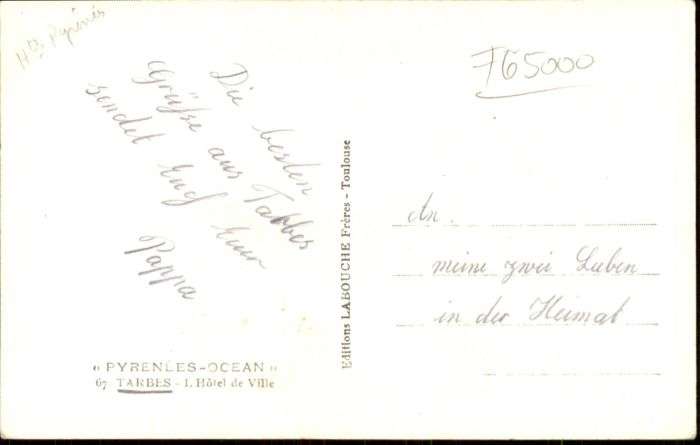 Htes Pyrénés
765000
Die besten
Grüße aus Tarbes
sendet Euch Euer
Pappa
Editions LABOUCHE Frères - Toulouse
An
meine zwei Lieben
in der Heimat
" PYRENEES-OCEAN "
67 TARBES - L'Hôtel de Ville